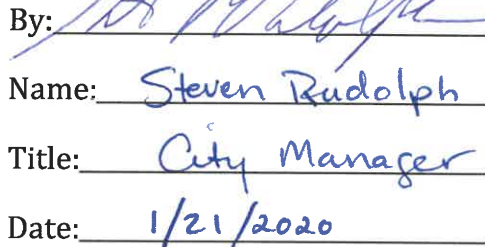 By:
Name: Steven Rudolph
Title: City Manager
Date: 1/21/2020